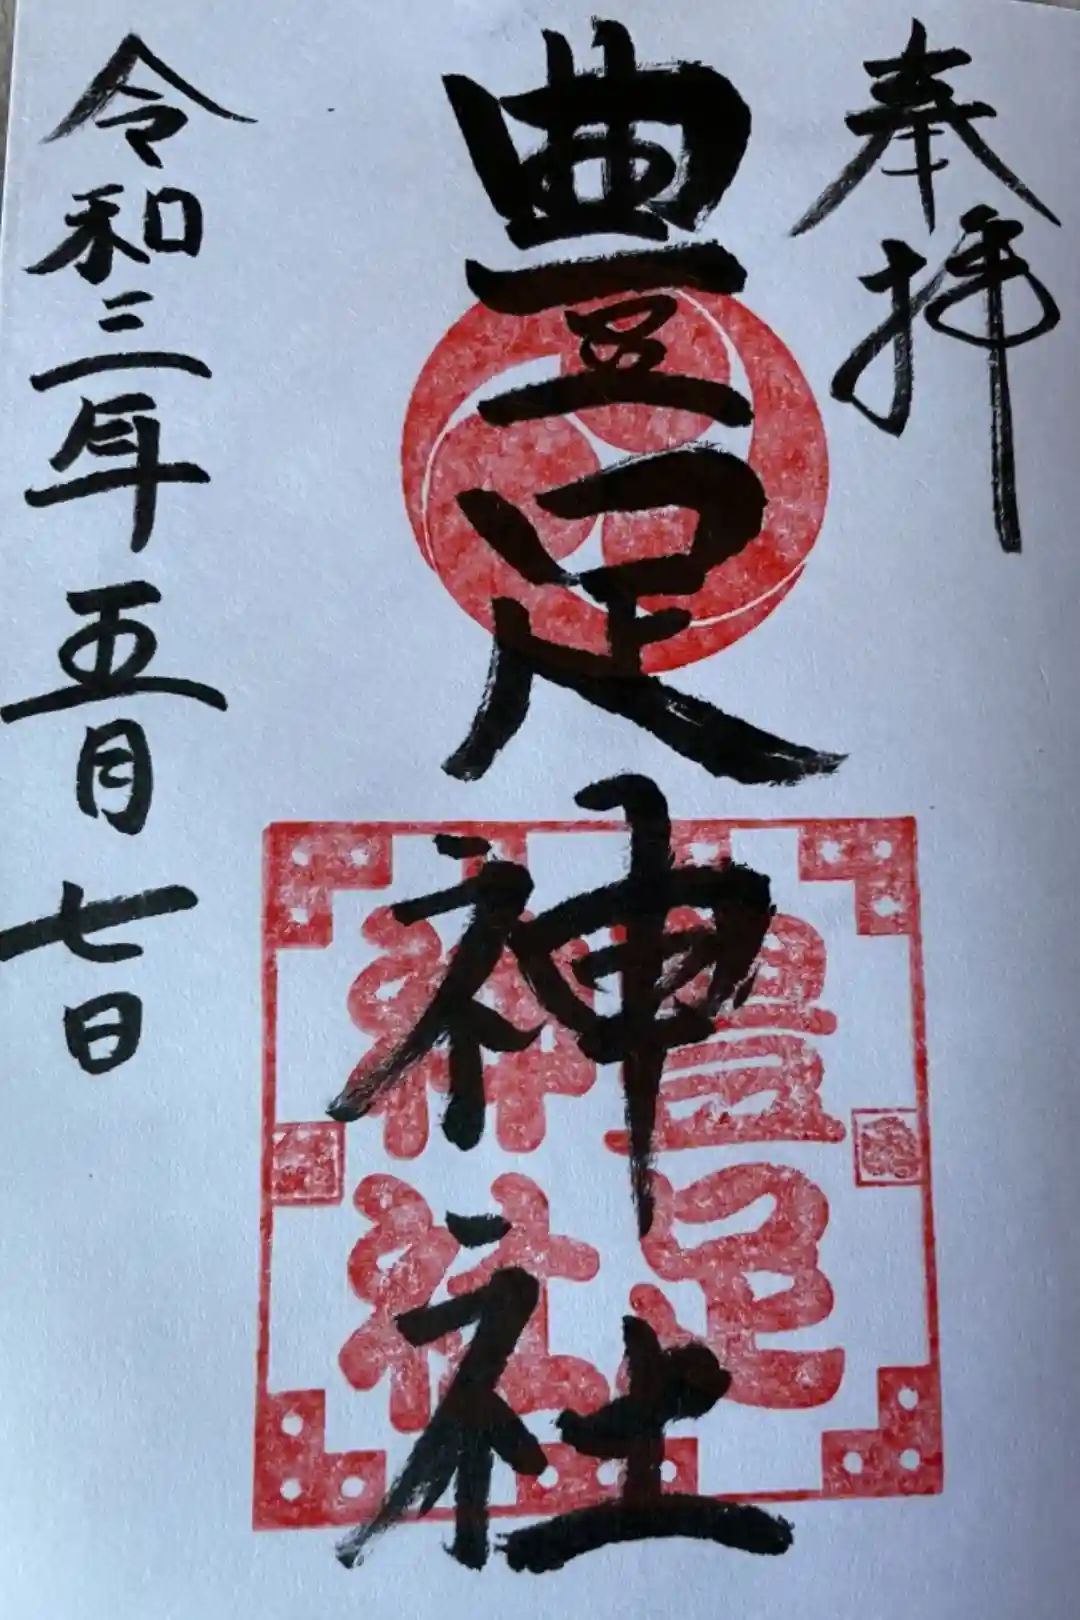 奉拝
豊足神社
令和三年五月七日
豊足
神社